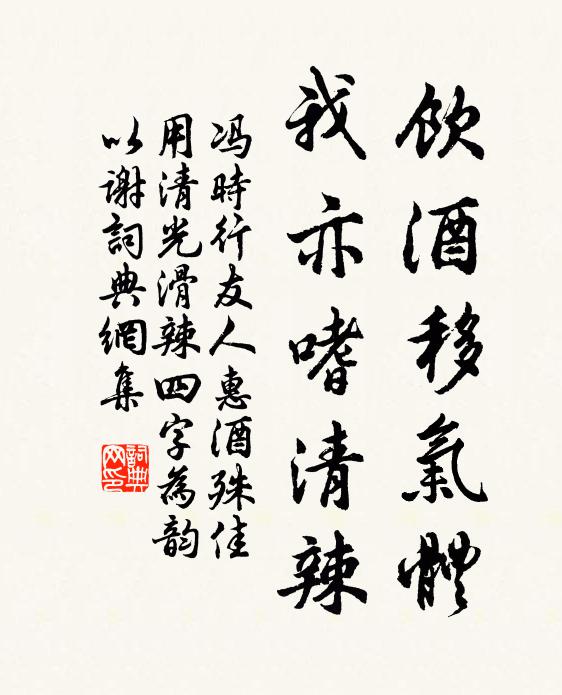 飲酒移氣體
我亦嗜清辣
冯時行友人惠酒殊佳
用清光滑辣四字為韵
以谢詞典網集
詞典网印